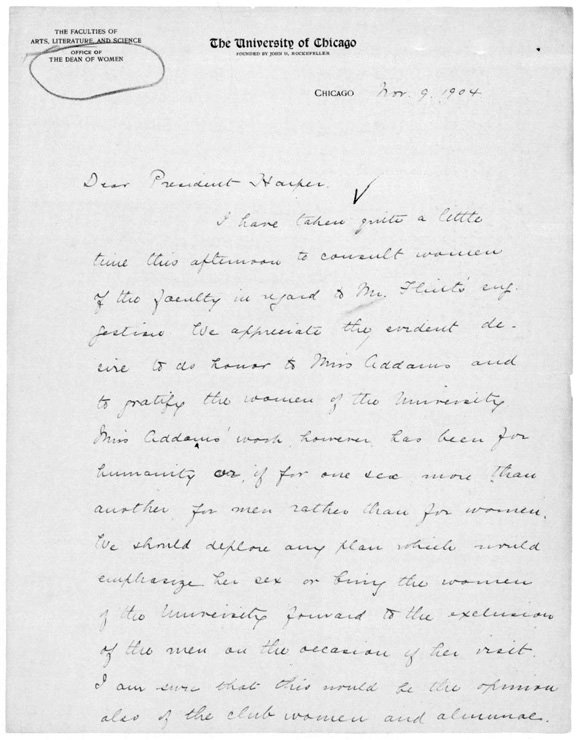 THE FACULTIES OF
ARTS, LITERATURE, AND SCIENCE
OFFICE OF
THE DEAN OF WOMEN
The University of Chicago
FOUNDED BY JOHN D. ROCKEFELLER
CHICAGO Nov. 9, 1904
Dear President Harper,
I have taken quite a little
time this afternoon to consult women
of the faculty in regard to Mr. Flint's sug-
gestion. We appreciate the evident de-
sire to do honor to Miss Addams and
to gratify the women of the University
Miss Addams' work, however, has been for
humanity or, if for one sex more than
another for men rather than for women.
We should deplore any plan which would
emphasize her sex or bring the women
of the University forward to the exclusion
of the men on the occasion of her visit.
I am sure that this would be the opinion
also of the club women and alumnae.